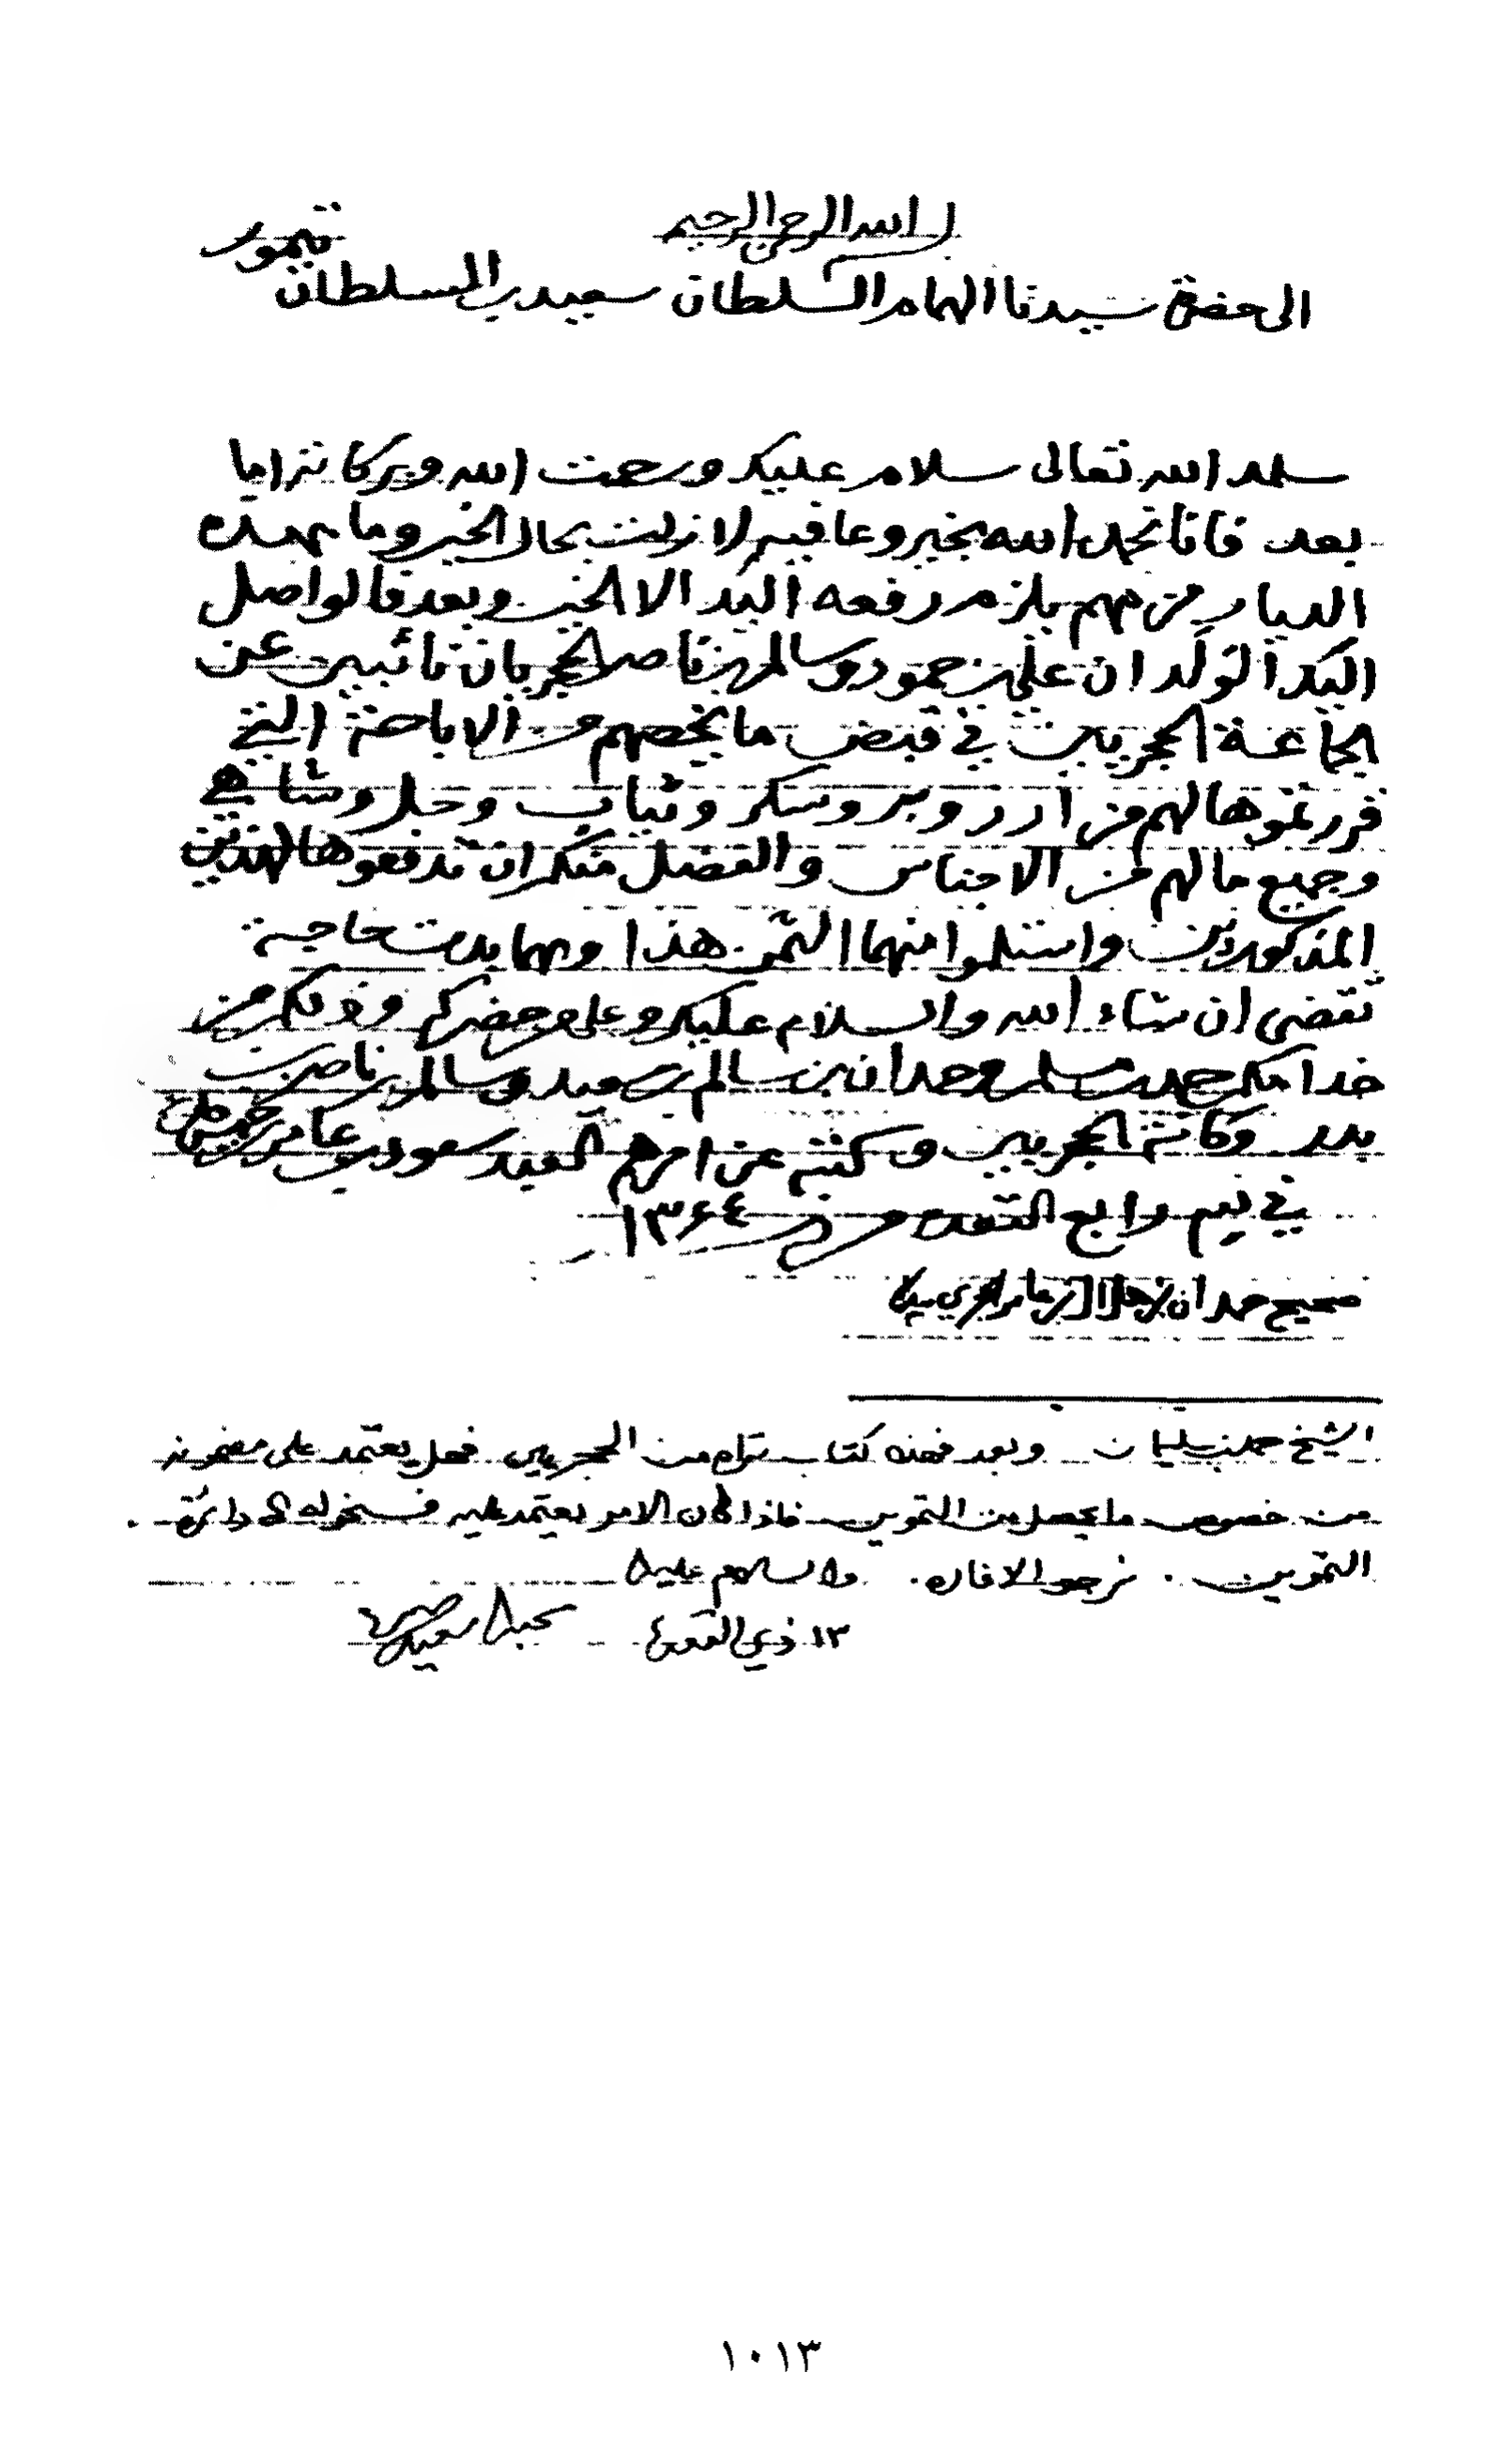 بسم الله الرحمن الرحيم
الى حضرة سيدنا الهمام السلطان سعيد بن السلطان تيمور
سلمه الله تعالى سلام عليك ورحمت الله وبركاته اما
بعد فانا نحمد الله بخير وعافيه لا زلت بحال الخير وما بهذه
الديار من مهم يلزم رفعه اليك الا الخير وبعد فالواصل
اليك الولدان علي بن حمود وسالم بن ناصر الحجريان نائبين عن
الجماعة الحجريين في قبض ما يخصهم من الاباحة التي
قررتموها لهم من ارز وبر وسكر وثياب وحل وشاهي
وجميع ما لهم من الاجناس والفضل منكم ان تدفعوها لهذين
المذكورين واستلموا منهما الثمن هذا ومهما بدت حاجة
تقضى ان شاء الله والسلام عليك وعلى من حضركم وذلكم من
خدامكم حمد بن مسلم وحمدان بن سالم بن سعيد وسالم بن ناصر بن
بدر وكافة الحجريين وكتبه عن امرهم العبد سعود بن عامر بن خميس
في يوم رابع القعده من ١٣٦٤
صحيح حمدان بن هلال بن عامر الحجري بيده
الشيخ حمد بن سليمان وبعد فهذه كتاب تراه من الحجريين فهل يعتمد على مضمونه
من خصوص ما يحصل من التموين فاذا كان الامر يعتمد عليه فسنحوله الى دائرة
التموين. نرجو الافاده. والسلام عليك
١٣ ذي القعدة
١٠١٣